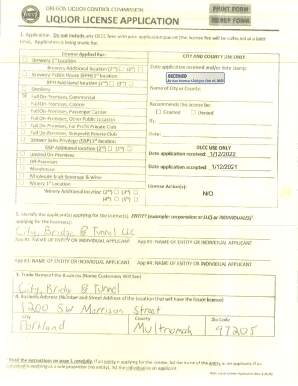 OREGON LIQUOR CONTROL COMMISSION
LIQUOR LICENSE APPLICATION
PRINT FORM
RESET FORM
1. Application. Do not include any OLCC fees with your application
License Applied For:
CITY AND COUNTY USE ONLY
Brewery 1st Location
Brewery Additional location (2nd) (3rd)
Brewery-Public House (BPH) 1st location
BPH Additional location (2nd) (3rd)
Distillery
Full On-Premises, Commercial
Full On-Premises, Caterer
Full On-Premises, Passenger Carrier
Full On-Premises, Other Public Location
Full On-Premises, For Profit Private Club
Full On-Premises, Nonprofit Private Club
Grower Sales Privilege (GSP) 1st location
GSP Additional location (2nd) (3rd)
Limited On-Premises
Off-Premises
Warehouse
Wholesale Malt Beverage & Wine
Winery 1st Location
Winery Additional location (2nd) (3rd)
(4th) (5th)
Date application received and/or date stamp:
RECEIVED
Name of City or County:
Recommends this license be:
Granted Denied
By:
Date:
OLCC USE ONLY
Date application received: 1/12/2022
Date application accepted: 1/12/2021
License Action(s):
N/O
2. Identify the applicant(s) applying for the license(s). ENTITY (example: corporation or LLC) or INDIVIDUAL(S)
applying for the license(s):
City, Bridge & Tunnel LLC
App #1: NAME OF ENTITY OR INDIVIDUAL APPLICANT
App #2: NAME OF ENTITY OR INDIVIDUAL APPLICANT
App #3: NAME OF ENTITY OR INDIVIDUAL APPLICANT
App #4: NAME OF ENTITY OR INDIVIDUAL APPLICANT
3. Trade Name of the Business (Name Customers Will See)
City, Bridge & Tunnel
4. Business Address (Number and Street Address of the Location that will have the liquor license)
1200 SW Morrison Street
City
County
Zip Code
Portland
Multnomah
97205